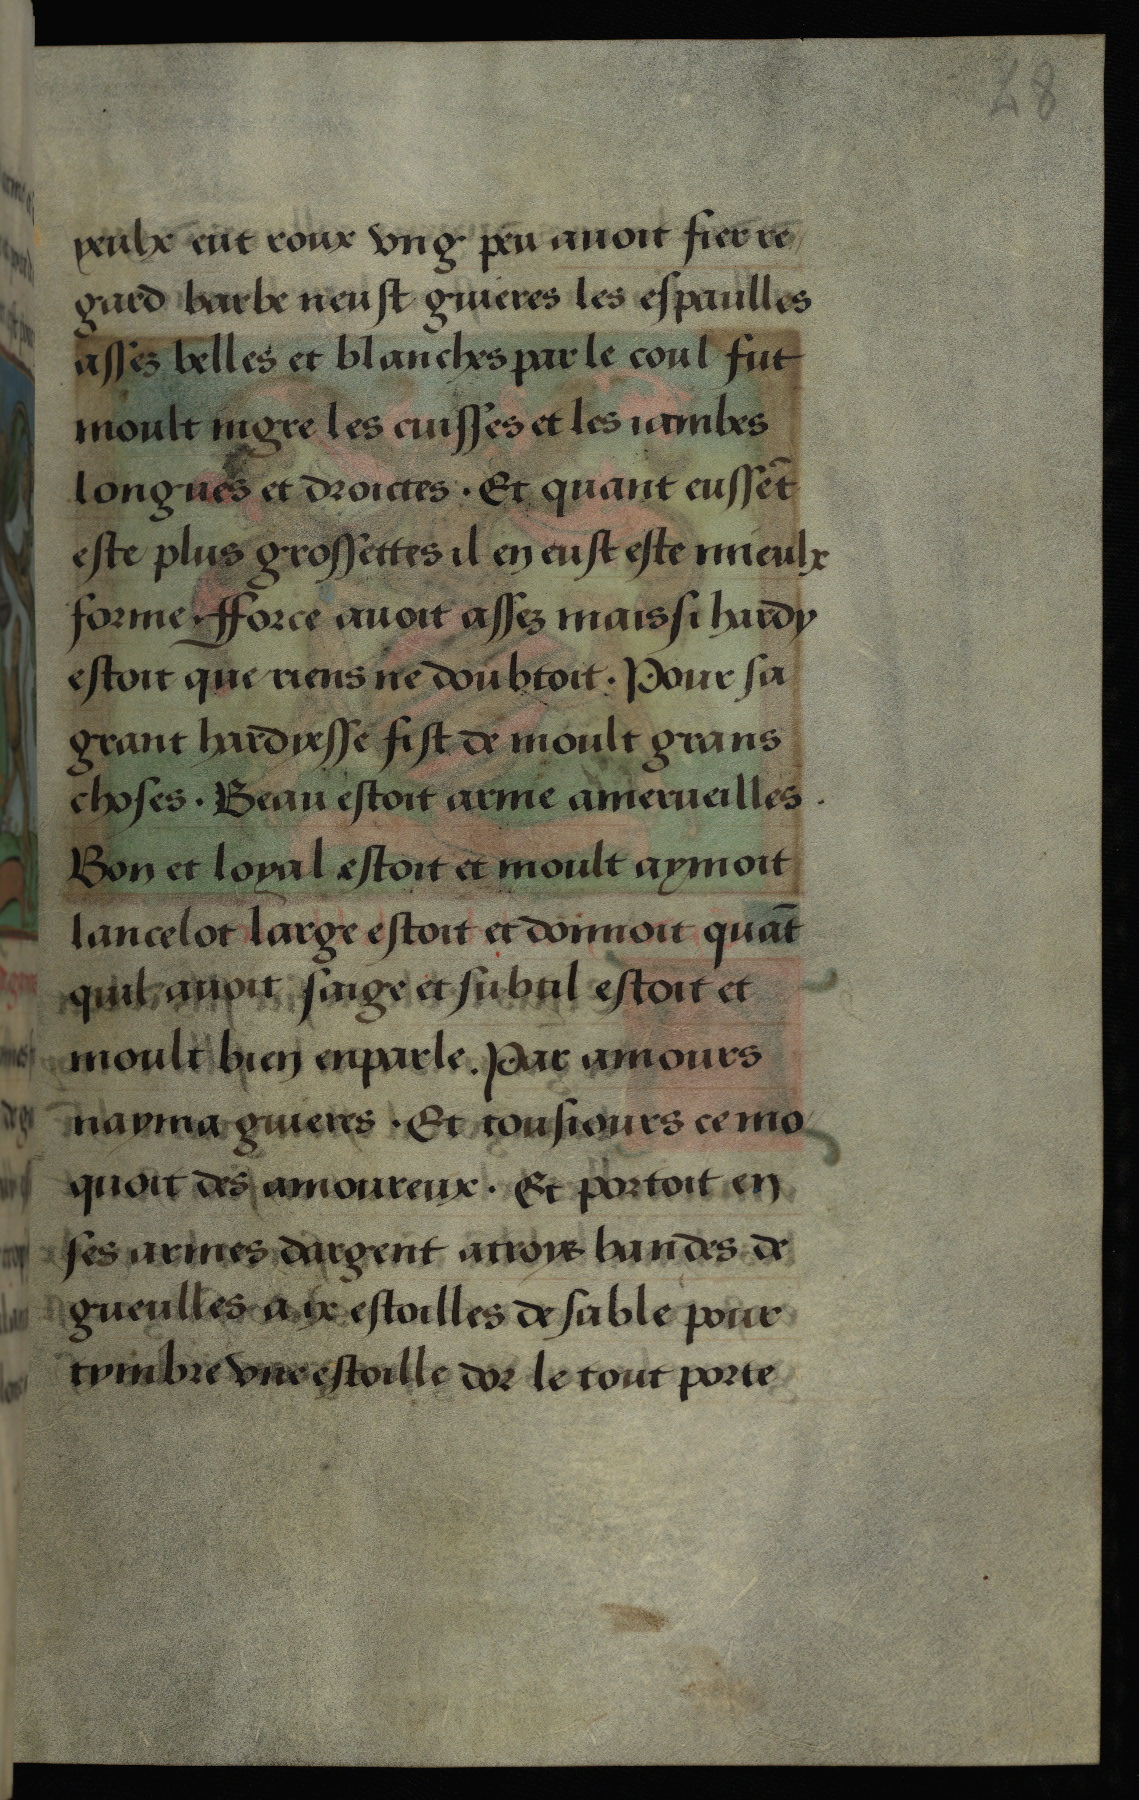 28
yeulx eut roux vng peu auoit fier re
gard barbe neust guieres les espaulles
assez belles et blanches par le coul fut
moult mgre les cuisses et les iambes
longues et droictes . Et quant eussēt
este plus grossettes il en eust este mieulx
forme . fforce auoit assez mais si hardy
estoit que riens ne doubtoit . Pour sa
grant hardyesse fist de moult grans
choses . Beau estoit arme amerueilles .
Bon et loyal estoit et moult aymoit
lancelot large estoit et donnoit quāt
quil auoit saige et subtil estoit et
moult bien enparle . Par amours
nayma guieres . Et tousiours ce mo
quoit des amoureux . Et portoit en
ses armes dargent atroys bandes de
gueulles a ix estoilles de sable pour
tymbre vne estoille dor le tout porte